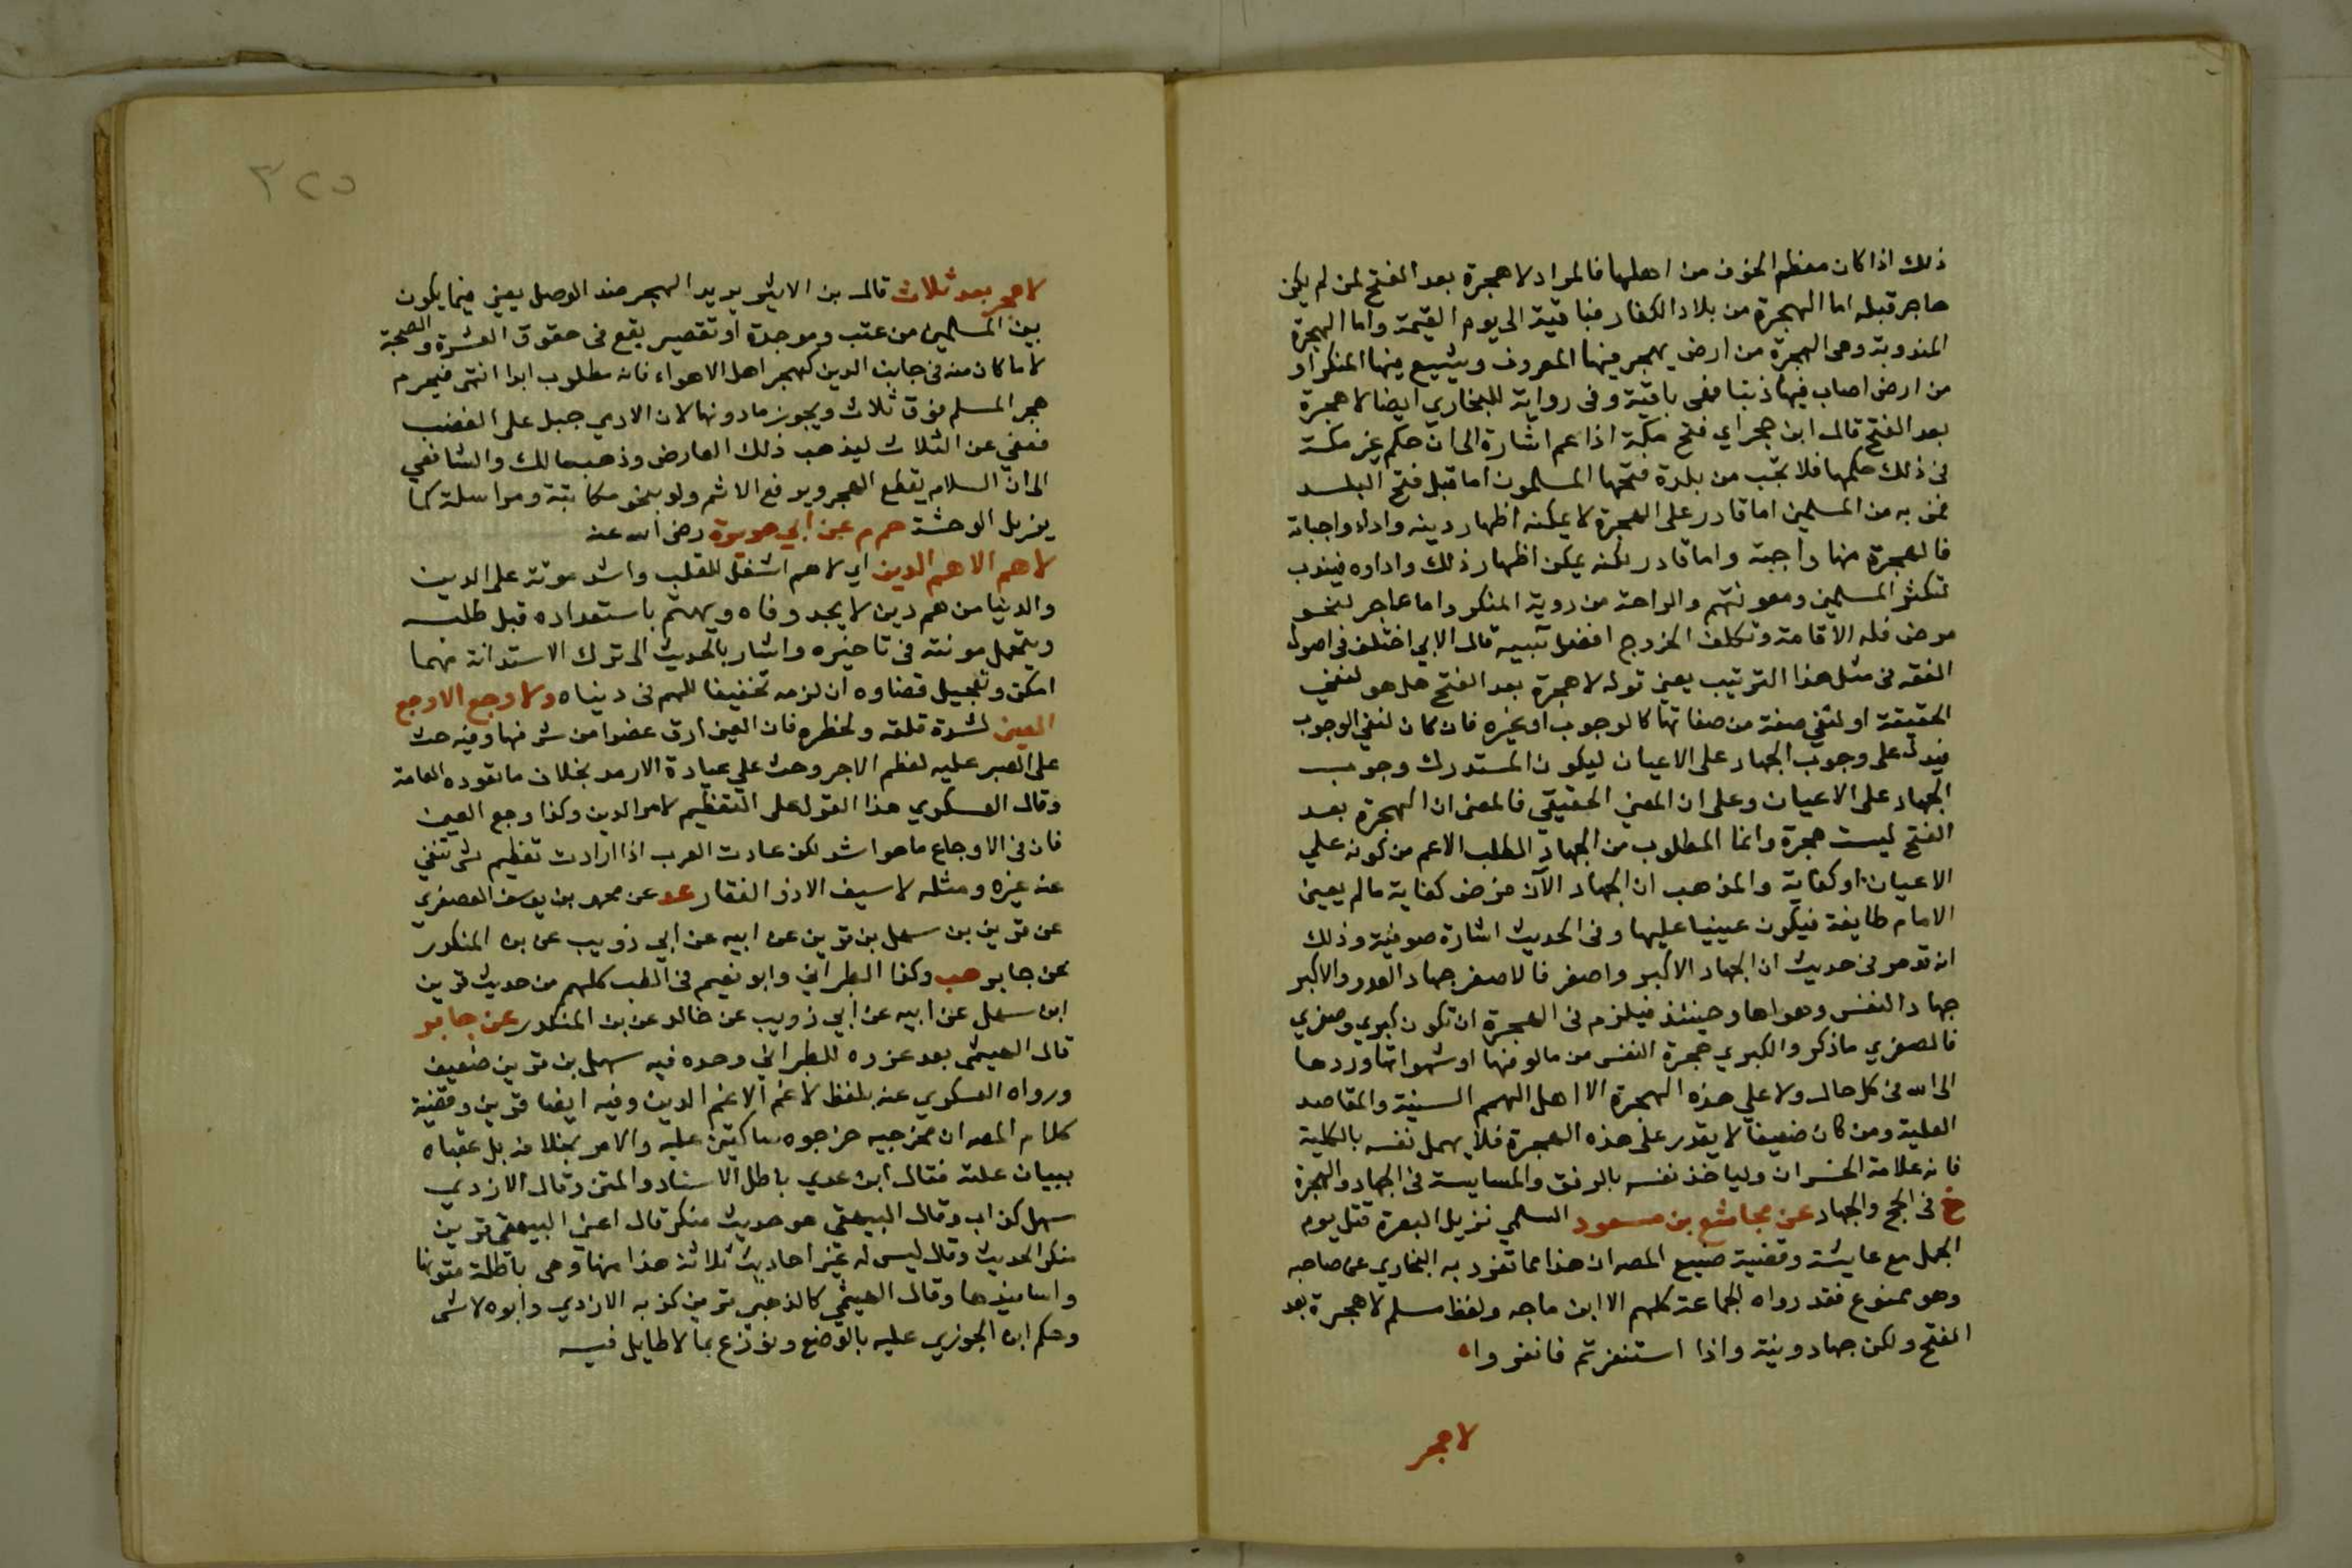 ذلك اذا كان معظم الخوف من اهلها فالمراد لا هجرة بعد الفتح لمن لم يكن
هاجر قبله اما الهجرة من بلاد الكفار فباقية الى يوم القيمة واما الهجرة
المندوبة وهى الهجرة من ارض يهجر فيها المعروف ويشيع فيها المنكر او
من ارض اصاب فيها ذنبا فهى باقية وفى رواية للبخاري ايضا لا هجرة
بعد الفتح قال ابن حجر اي فتح مكة اذا عم اشارة الى ان حكم غير مكة
فى ذلك حكمها فلا تجب من بلدة فتحها المسلمون اما قبل فتح البلد
فمن به من المسلمين اما قادر على الهجرة لا يمكنه اظهار دينه واداء واجباته
فالهجرة منها واجبة واما قادر لكنه يمكن اظهار ذلك واداوه فيندب
لتكثر المسلمين ومعونتهم والراحة من روية المنكر واما عاجر لنحو
مرض فله الاقامة وتكلف الخروج افضل تنبيه قال الابي اختلف فى اصول
الفقه فى مثل هذا الترتيب يعنى قوله لا هجرة بعد الفتح هل هو لنفي
الحقيقة او لنفي صفة من صفاتها كالوجوب او غيره فان كان لنفي الوجوب
فيدل على وجوب الجهاد على الاعيان ليكون المستدرك وجوب
الجهاد على الاعيان وعلى ان المعني الحقيقي فالمعنى ان الهجرة بعد
الفتح ليست هجرة وانما المطلوب من الجهاد الطلب الاعم من كونه علي
الاعيان او كفاية والمذهب ان الجهاد الآن فرض كفاية ما لم يعين
الامام طايفة فيكون عينيا عليها وفى الحديث اشارة صوفية وذلك
انه قد مر فى حديث ان الجهاد الاكبر واصغر فالاصغر جهاد العدو والاكبر
جهاد النفس وهواها وحينئذ فيلزم فى الهجرة ان تكون كبري وصغري
فالصغري ما ذكر والكبري هجرة النفس من مالوفها او شهواتها وردها
الى الله فى كل حال ولا علي هذه الهجرة الا اهل الهمم السنية والمقاصد
العلية ومن كان ضعيفا لا يقدر على هذه الهجرة فلا يهمل نفسه بالكلية
فانه علامة الخسران ولياخذ نفسه بالرفق والمسايسة فى الجهاد والهجرة
خ فى الحج والجهاد عن مجاشع بن مسعود السلمي نزيل البصرة قتل يوم
الجمل مع عايشة وقضية صنيع المص ان هذا مما تفرد به البخاري عن صاحبه
وهو ممنوع فقد رواه الجماعة كلهم الا ابن ماجه ولفظ مسلم لا هجرة بعد
الفتح ولكن جهاد ونية واذا استنفرتم فانفروا
لا هجر
٣٢٥
لا هجر بعد ثلاث قال بن الاثير يريد الهجر ضد الوصل يعني فيما يكون
بين المسلمين من عتب وموجدة او تقصير يقع فى حقوق العشرة والصحبة
لا ما كان منه فى جانب الدين كهجر اهل الاهواء فانه مطلوب ابدا انتهى فيحرم
هجر المسلم فوق ثلاث ويجوز ما دونها لان الادمي جبل على الغضب
فعفي عن الثلاث ليذهب ذلك العارض وذهب مالك والشافعي
الى ان السلام يقطع الهجر ويرفع الاثم ولو بنحو مكاتبة ومراسلة كما
يزيل الوحشة حم م عن ابي هريرة رضى الله عنه
لا هم الا هم الدين اي لا هم اشغل للقلب واشد موتة على الدين
والدنيا من هم دين لا يجد وفاه ويهتم باستعداده قبل طلبه
ويتحمل مونته فى تاخيره واشار بالحديث الى ترك الاستدانة مهما
امكن وتعجيل قضاوه ان لزمه تخفيفا للهم فى دنياه ولا وجع الا وجع
العين لشدة قلقه ولخطره فان العين ارق عضوا من شرفها وفيه حث
على الصبر عليه لعظم الاجر وحث علي عيادة الارمد بخلاف ما تعوده العامة
وقال العسكري هذا القول على التعظيم لامر الدين وكذا وجع العين
فان فى الاوجاع ما هو اشد لكن عادت العرب اذا ارادت تعظيم شى تنفي
عنه غيره ومثله لا سيف الا ذو الفقار عد عن محمد بن يوسف العصفري
عن قرين بن سهل بن قرين عن ابيه عن ابي ذويب عن بن المنكدر
عن جابر هب وكذا الطبراني وابو نعيم فى الطب كلهم من حديث قرين
ابن سهل عن ابيه عن ابي ذويب عن خالد عن بن المنكدر عن جابر
قال الهيثمى بعد عزوه للطبراني وحده فيه سهل بن قرين ضعيف
ورواه العسكري عنه بلفظ لا غم الا غم الدين وفيه ايضا قرين وقضية
كلام المص ان مخرجيه خرجوه ساكتين عليه والامر بخلافه بل عقباه
ببيان علته فقال ابن عدي باطل الاسناد والمتن وقال الازدي
سهل كذاب وقال البيهقي هو حديث منكر قال اعني البيهقي قرين
منكر الحديث وقال ليس له غير احاديث ثلاثة هذا منها وهى باطلة متونها
واسانيدها وقال الهيثمي كالذهبي قرين كذبه الازدي وابوه لا شى
وحكم ابن الجوزي عليه بالوضع ونوزع بما لا طايل فيه